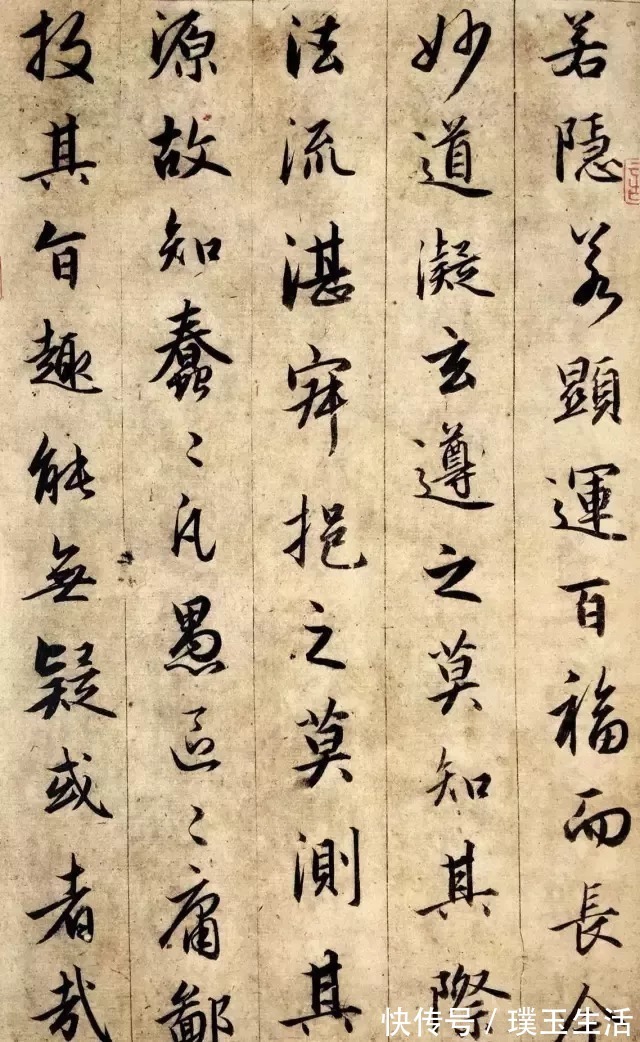 若隱若顯運百福而長今
妙道凝玄遵之莫知其際
法流湛寂挹之莫測其
源故知蠢〻凡愚區〻庸鄙
投其旨趣能無疑或者哉
快传号 / 璞玉生活